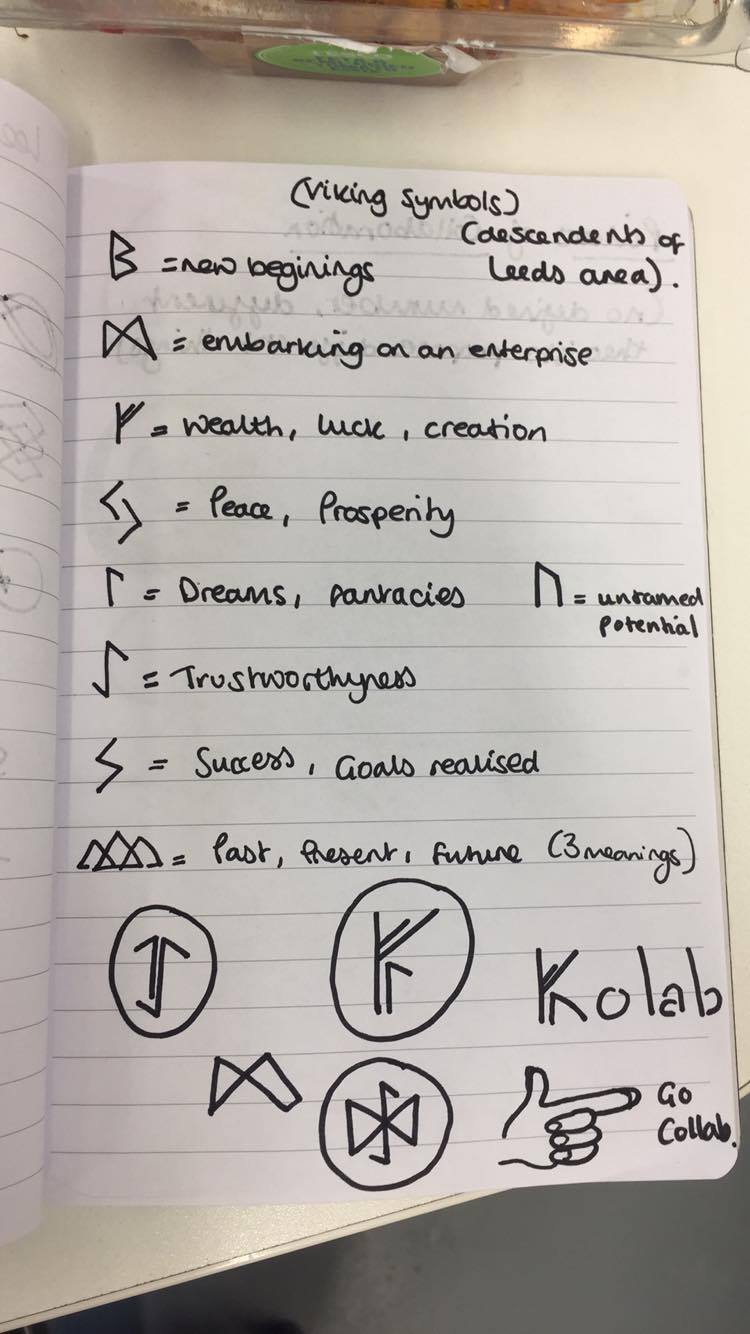 (Viking Symbols)
(descendents of
Leeds area).
ᛒ = new beginings
ᛞ = embarking on an enterprise
ᚠ = Wealth, luck, creation
ᛃ = Peace, Prosperity
ᛚ = Dreams, fantacies
ᚢ = untamed
potential
ᛇ = Trustworthyness
ᛊ = Success, Goals realised
= Past, Present, Future (3 meanings)
Kolab
Go
Collab.